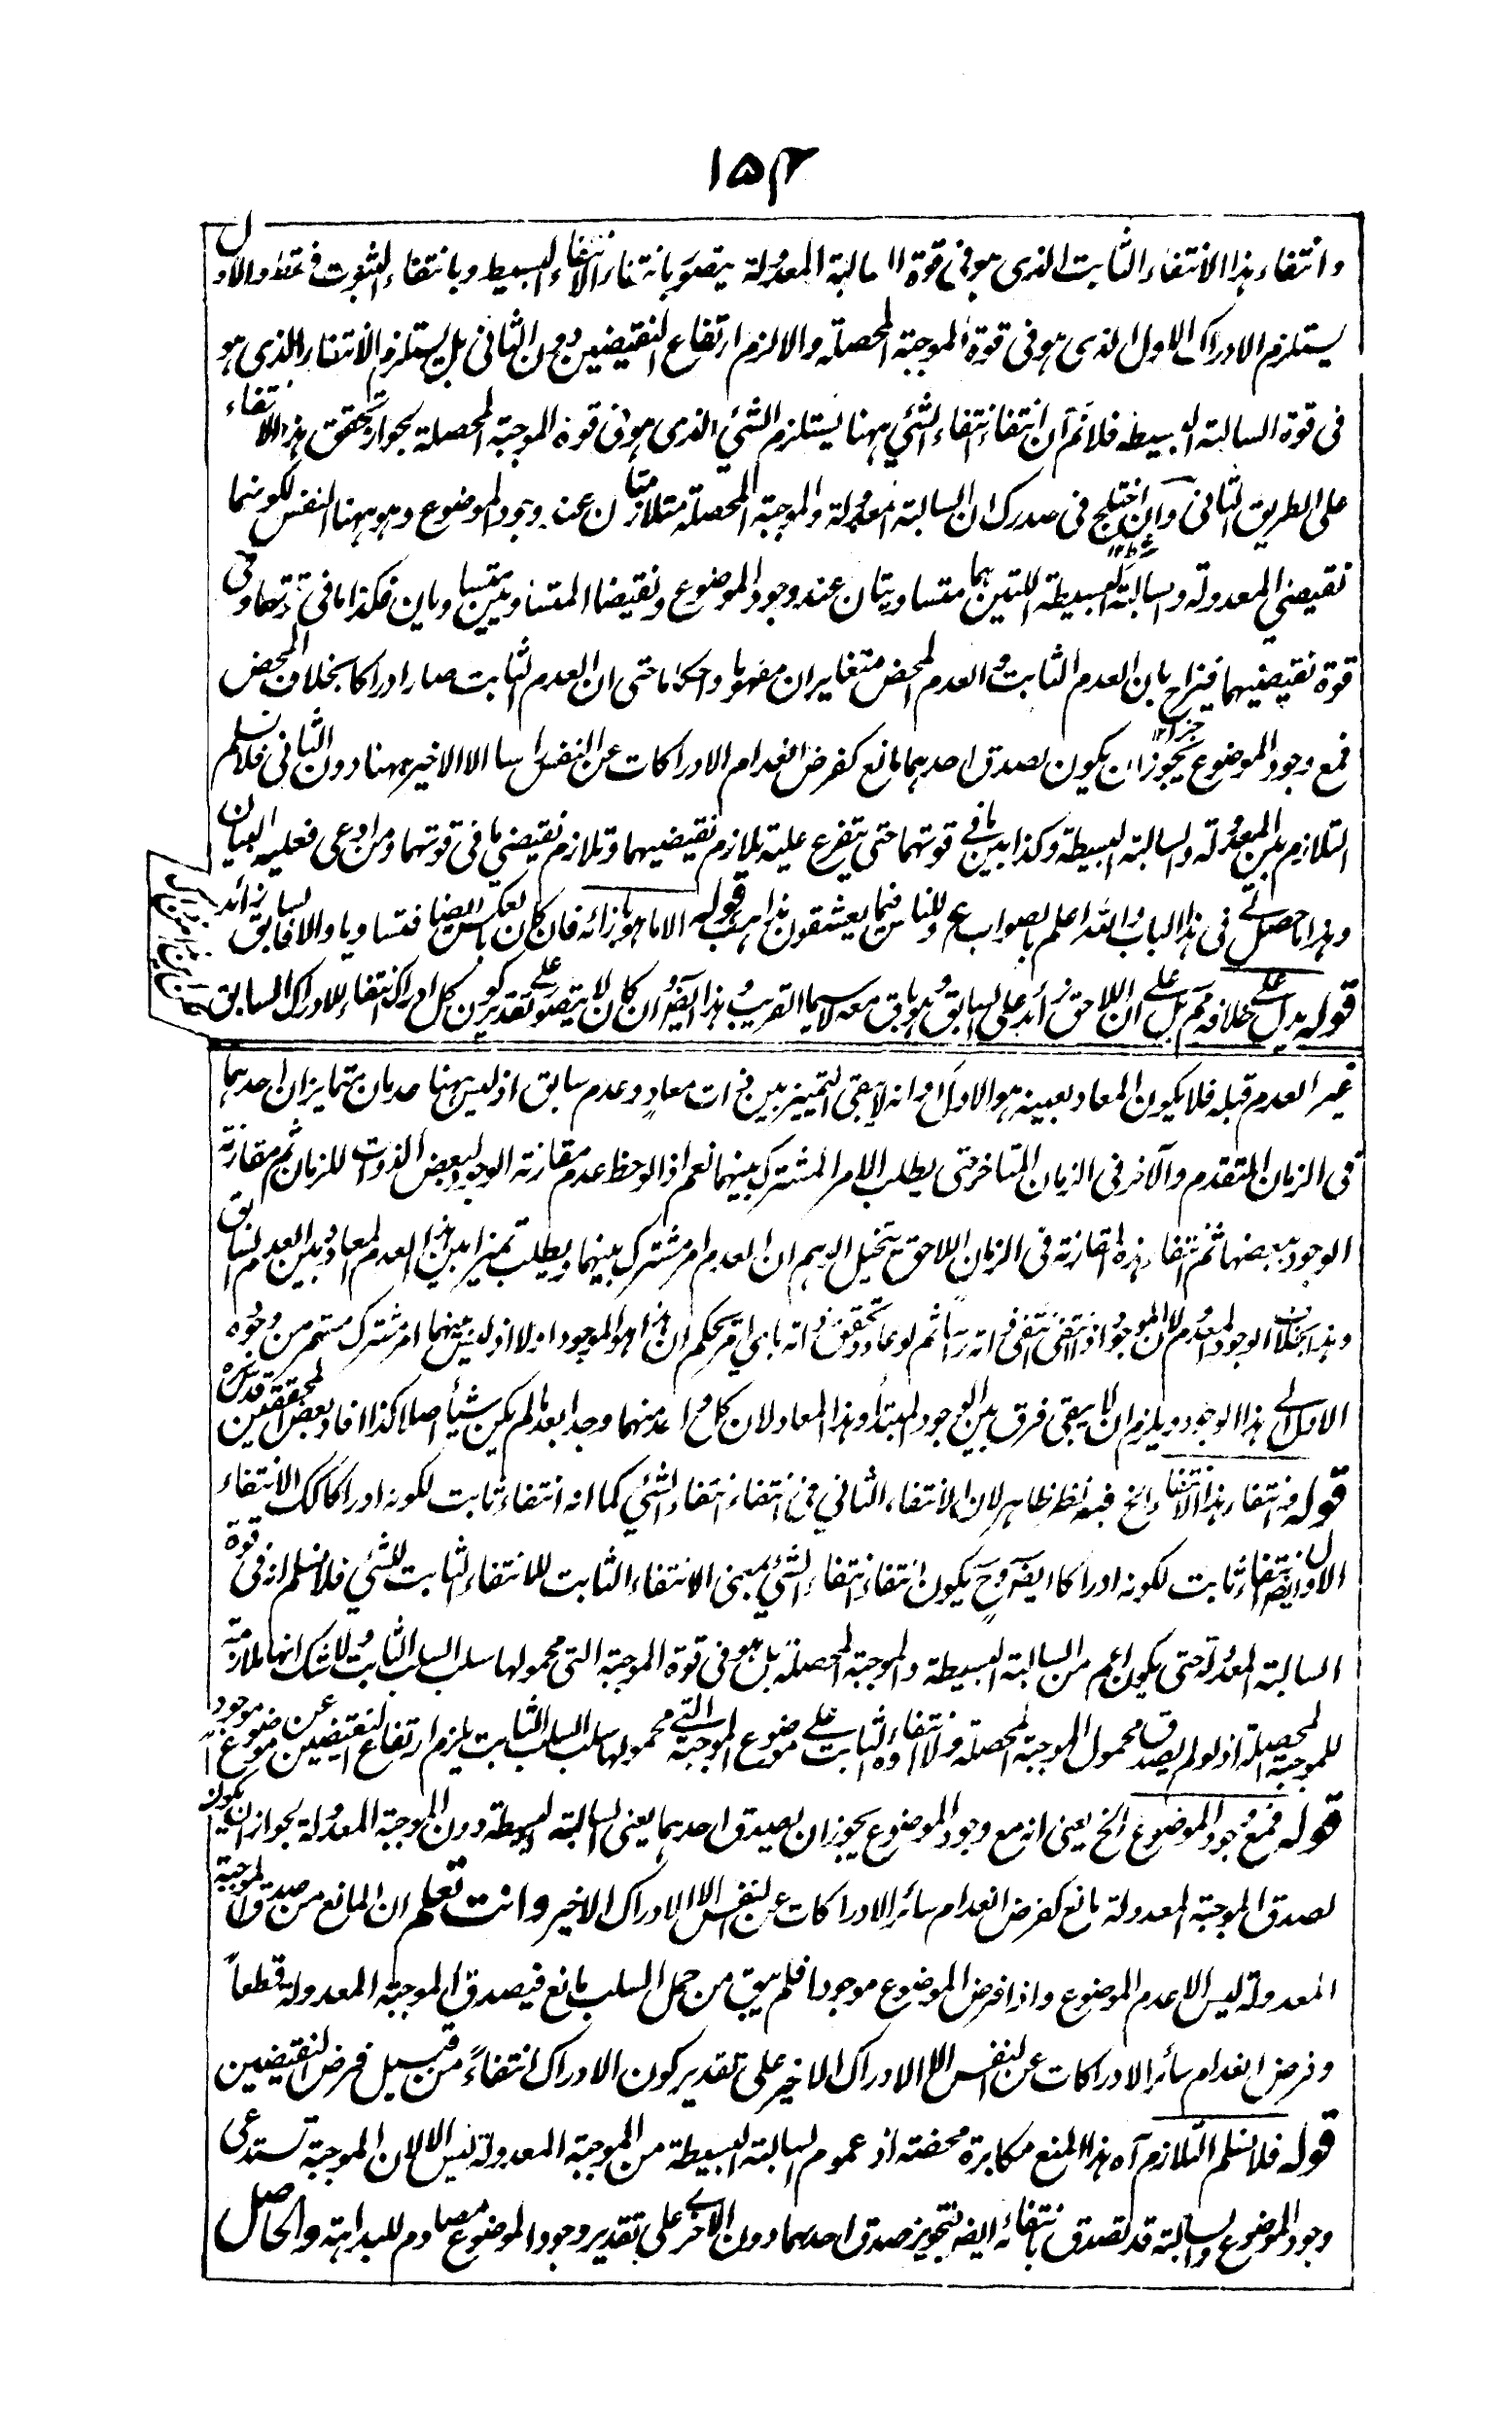 ١٥٢
وانتفاء هذا الانتفاء الثابت الذى هو فى قوة السالبة المعدولة يتصور بانتفاء الانتفاء البسيط وبانتفاء الثبوت فقط والاول
يستلزم الادراك الاول الذى هو فى قوة الموجبة المحصلة والا لزم ارتفاع النقيضين دون الثانى بل يستلزم الانتفاء الذى هو
فى قوة السالبة البسيطة فلا نم ان انتفاء انتفاء الشئ ههنا يستلزم الشئ الذى هو فى قوة الموجبة المحصلة لجواز تحقق هذا الانتفاء
على الطريق الثانى وان اختلج فى صدرك ان السالبة المعدولة والموجبة المحصلة متلازمتان عند وجود الموضوع وهو ههنا النفس لكونهما
نقيضى المعدولة والسالبة البسيطة اللتين هما متساويتان عند وجود الموضوع ونقيضا المتساويين متساويان فكذا ما فى قوتهما وفى
قوة نقيضيهما فيزاح بان العدم الثابت والعدم المحض متغايران مفهوما واحكاما حتى ان العدم الثابت صار ادراكا بخلاف المحض
فمع وجود الموضوع يجوز ان يكون لصدق احدهما مانع كفرض انعدام الادراكات عن النفس راسا الا الاخير ههنا دون الثانى فلا نسلم
التلازم بين المعدولة والسالبة البسيطة وكذا بين ما فى قوتهما حتى يتفرع عليه تلازم نقيضيهما وتلازم نقيضى ما فى قوتهما ومن ادعى فعليه البيان
وهذا ما حصل لى فى هذا الباب والله اعلم بالصواب ع وللناس فيما يعشقون مذاهب قوله الا ما هو بازائه فان كان بالعكس ايضا فتساويا والا فالسابق زائد
قوله يدل على خلافه مم بل على ان اللاحق زائد على السابق وهو باق معه لا سيما التقريب وهذا ايضا وان كان لا يتصور على تقدير كون كل ادراك انتفاء للادراك السابق
غير العدم قبله فلا يكون المعاد بعينه هو الاول وانه لا يبقى التمييز بين ذات معاد وعدم سابق اذ ليس ههنا عدمان يتمايزان احدهما
فى الزمان المتقدم والآخر فى الزمان المتاخر حتى يطلب الامر المشترك بينهما نعم اذا لوحظ عدم مقارنة الوجود لبعض الذوات للزمان ثم مقارنة
الوجود ببعضها ثم انتفاء هذه المقارنة فى الزمان اللاحق يتخيل الوهم ان العدم امر مشترك بينهما ويطلب تميزا بين هذا العدم المعاد وبين العدم السابق
وهذا بخلاف الوجود المعدوم لان الموجود اذا انتفى انتفى ذاته راسا ثم لو عاد وتحقق ذاته باى امر يحكم ان هذا هو الموجود اولا اذ ليس بينهما امر مشترك مستمر من وجوده
الاول الى هذا الوجود ويلزم ان لا يبقى فرق بين الوجود المبتدأ وهذا المعاد لان كل واحد منهما وجد بعد ما لم يكن شيأ اصلا كذا افاد بعض المحققين قدس سره
قوله فانتفاء هذا الانتفاء الخ فيه نظر ظاهر لان الانتفاء الثانى من انتفاء انتفاء الشئ كما انه انتفاء ثابت لكونه ادراكا كك الانتفاء
الاول ايضا انتفاء ثابت لكونه ادراكا ايضا وح يكون انتفاء انتفاء الشئ بمعنى الانتفاء الثابت للانتفاء الثابت للشئ فلا نسلم انه فى قوة
السالبة المعدولة حتى يكون اعم من السالبة البسيطة والموجبة المحصلة بل هو فى قوة الموجبة التى محمولها سلب السلب الثابت ولا شك انها ملازمة
للموجبة المحصلة اذ لو لم يصدق محمول الموجبة المحصلة ولا انتفاؤه الثابت على موضوع الموجبة التى محمولها سلب السلب الثابت يلزم ارتفاع النقيضين عن موضوع موجود
قوله فمع وجود الموضوع الخ يعنى انه مع وجود الموضوع يجوز ان يصدق احدهما يعنى السالبة البسيطة دون الموجبة المعدولة لجواز ان يكون
لصدق الموجبة المعدولة مانع كفرض انعدام سائر الادراكات عن النفس الا الادراك الاخير وانت تعلم ان المانع من صدق الموجبة
المعدولة ليس الا عدم الموضوع واذا فرض الموضوع موجودا فلم يبق من حمل السلب مانع فيصدق الموجبة المعدولة قطعاً
وفرض انعدام سائر الادراكات عن النفس الا الادراك الاخير على تقدير كون الادراك انتفاءً من قبيل فرض النقيضين
قوله فلا نسلم التلازم آه هذا المنع مكابرة محضة اذ عموم السالبة البسيطة من الموجبة المعدولة ليس الا لان الموجبة تستدعى
وجود الموضوع والسالبة قد تصدق بانتفائه ايضا فتجويز صدق احدهما دون الاخرى على تقدير وجود الموضوع مصادم للبداهة والحاصل